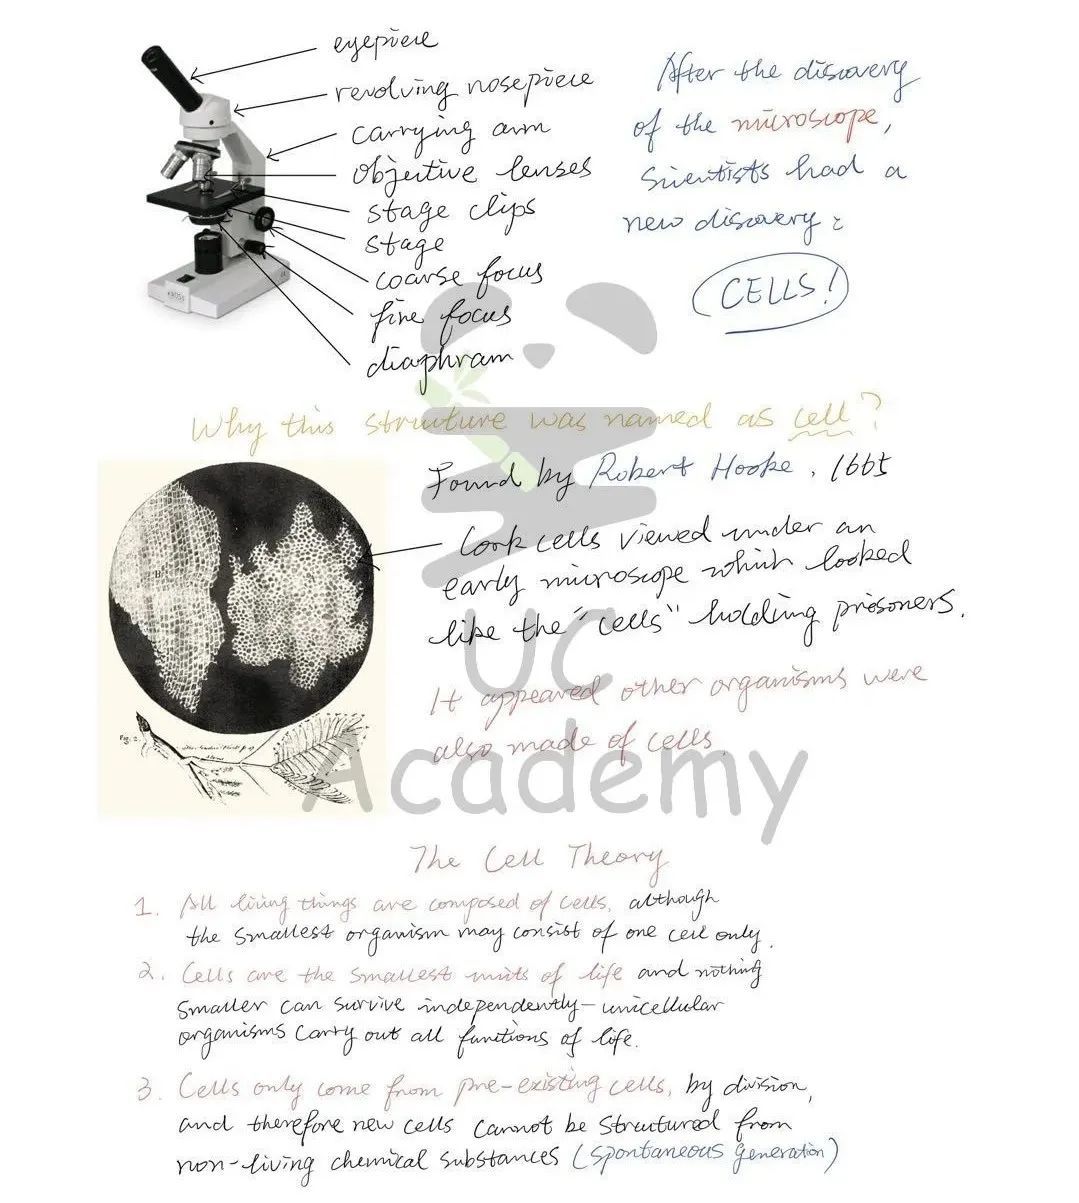 eyepiece
revolving nosepiece
carrying arm
objective lenses
stage clips
stage
coarse focus
fine focus
diaphram
After the discovery
of the microscope,
scientists had a
new discovery:
CELLS!
Why this structure was named as cell?
Found by Robert Hooke, 1665
Cork cells viewed under an
early microscope which looked
like the "cells" holding prisoners.
It appeared other organisms were
also made of cells.
UC
Academy
Fig. 2.
The Cell Theory
1. All living things are composed of cells, although
the smallest organism may consist of one cell only.
2. Cells are the smallest units of life and nothing
smaller can survive independently - unicellular
organisms carry out all functions of life.
3. Cells only come from pre-existing cells, by division,
and therefore new cells cannot be structured from
non-living chemical substances (spontaneous generation)